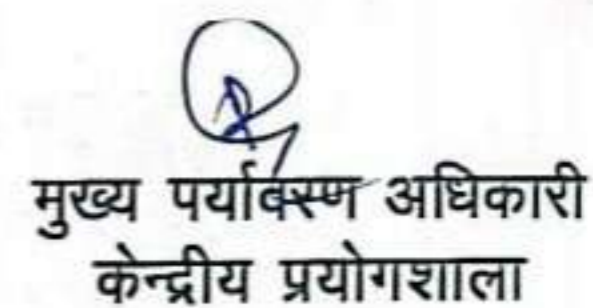 मुख्य पर्यावरण अधिकारी
केन्द्रीय प्रयोगशाला